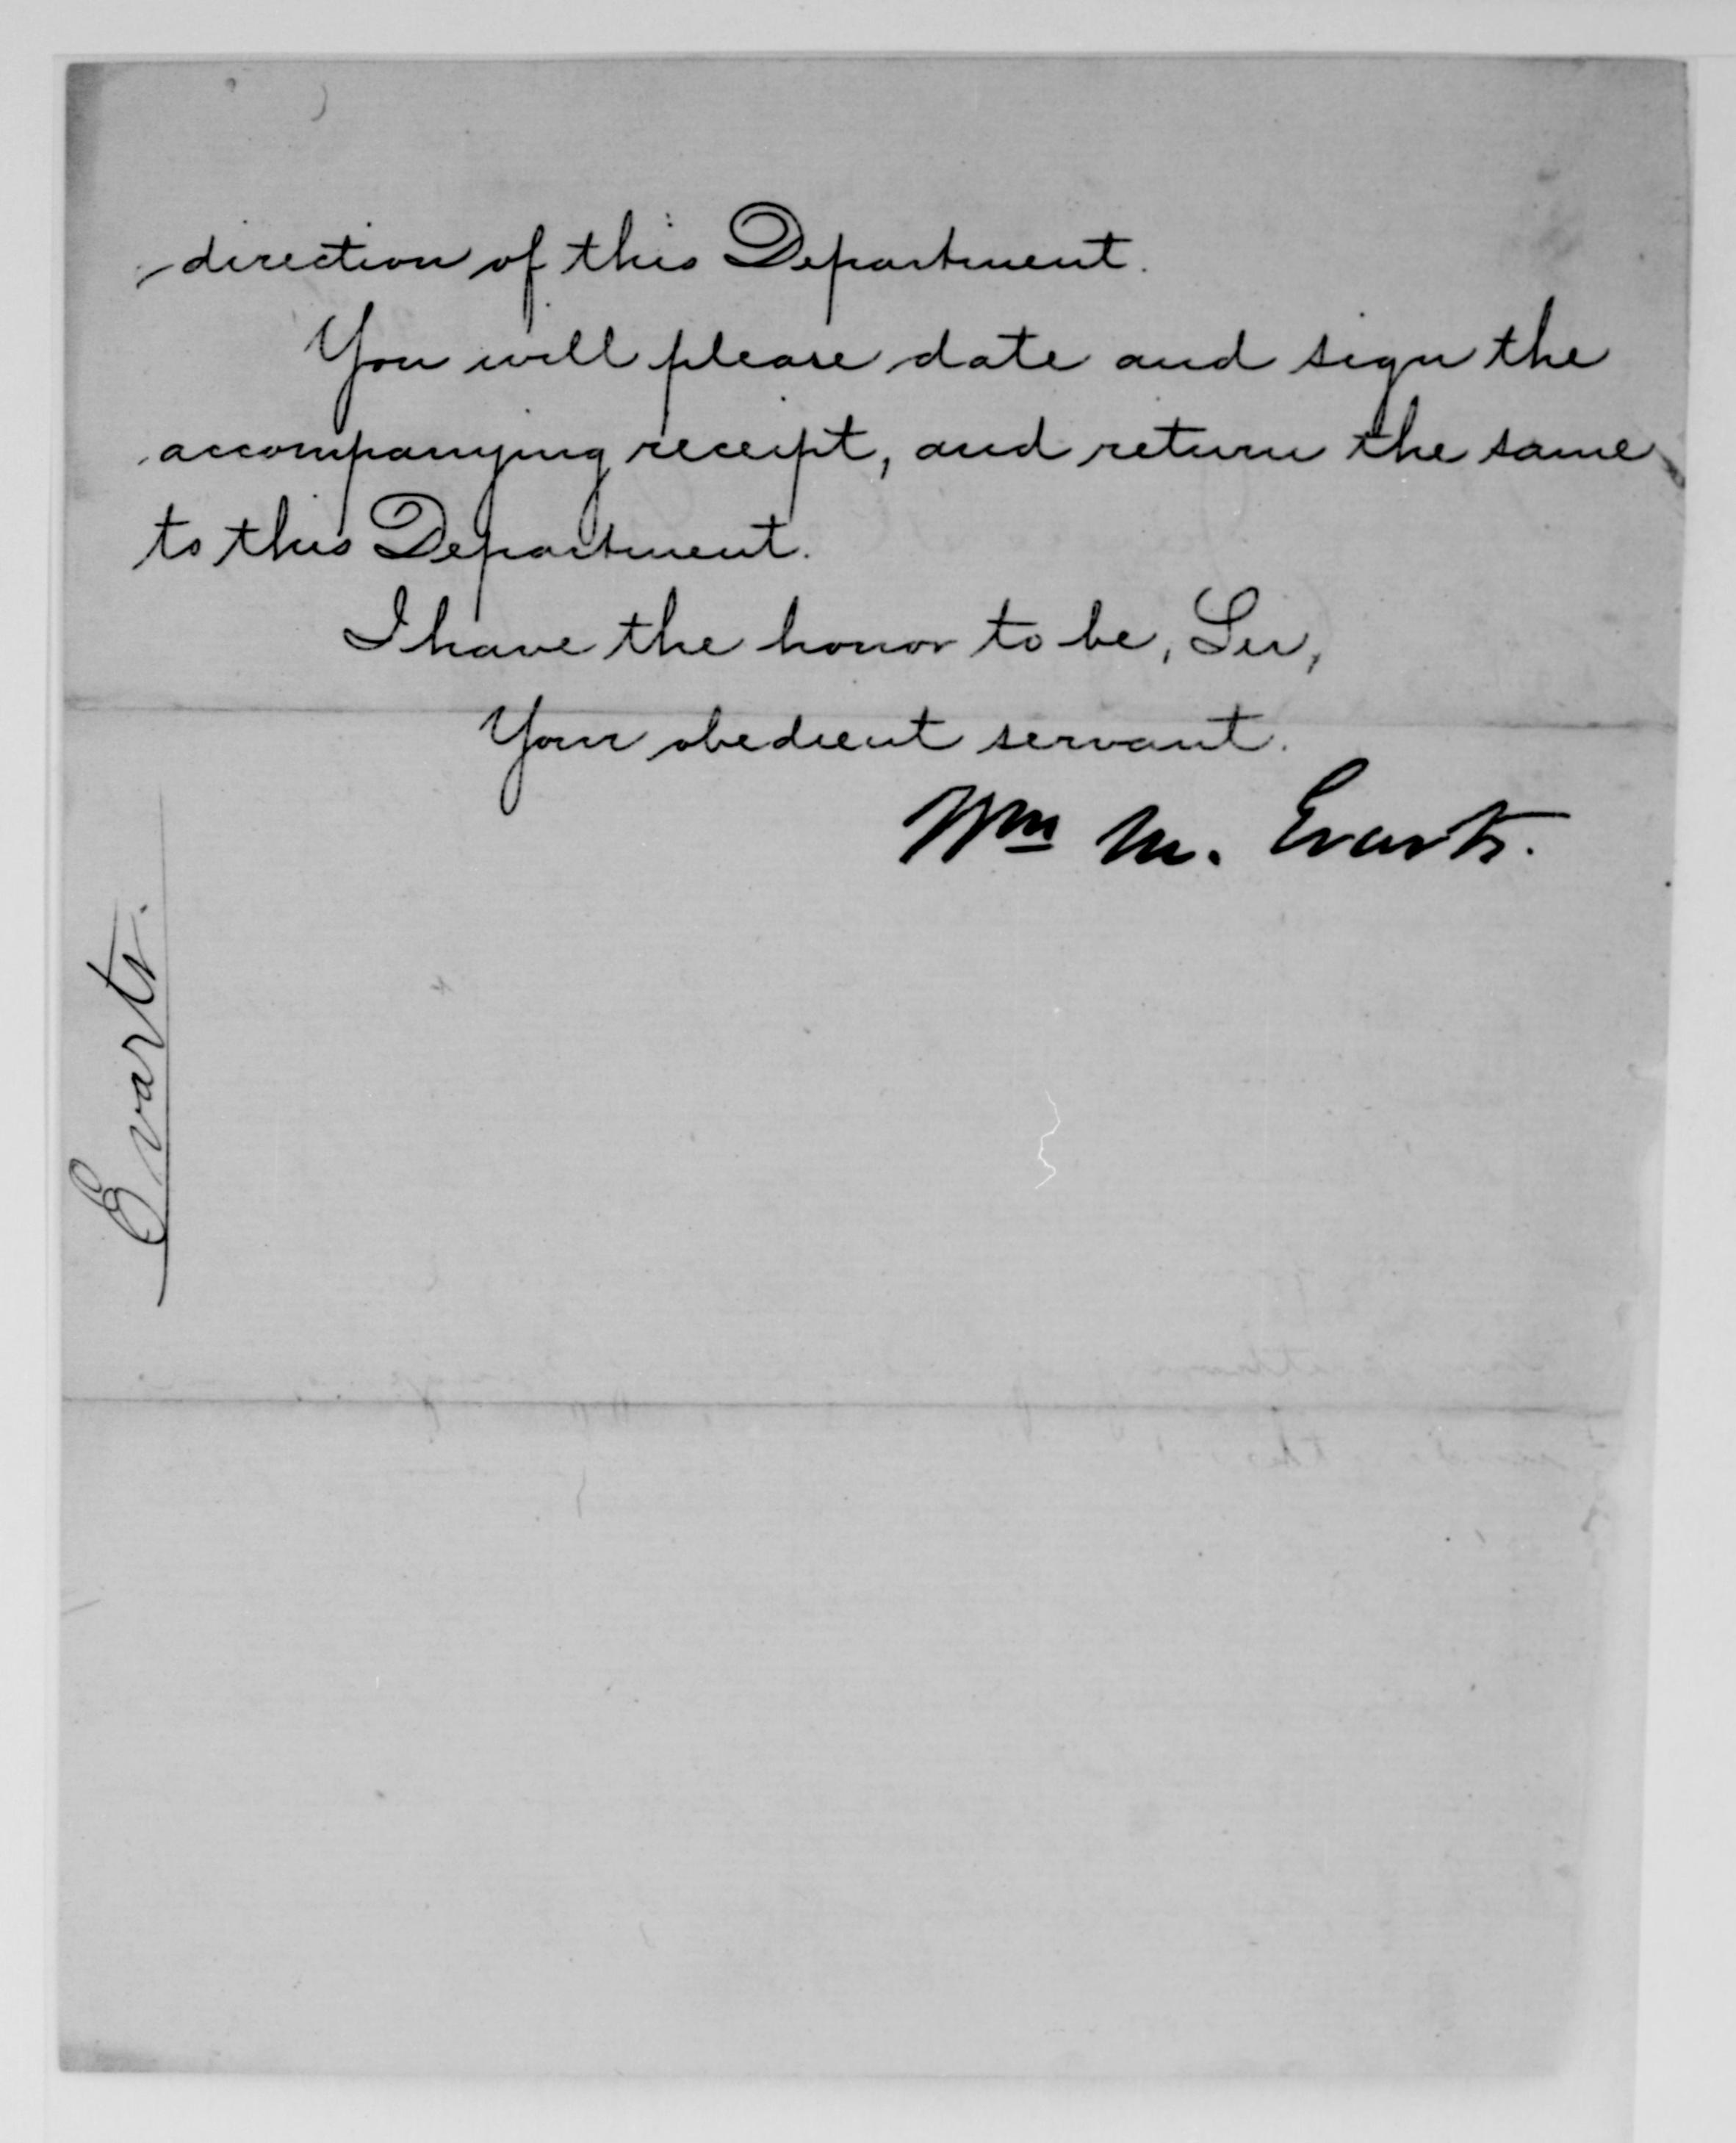 direction of this Department.
You will please date and sign the
accompanying receipt, and return the same
to this Department.
I have the honor to be, Sir,
Your obedient servant.
Wm M. Evarts.
Evarts.